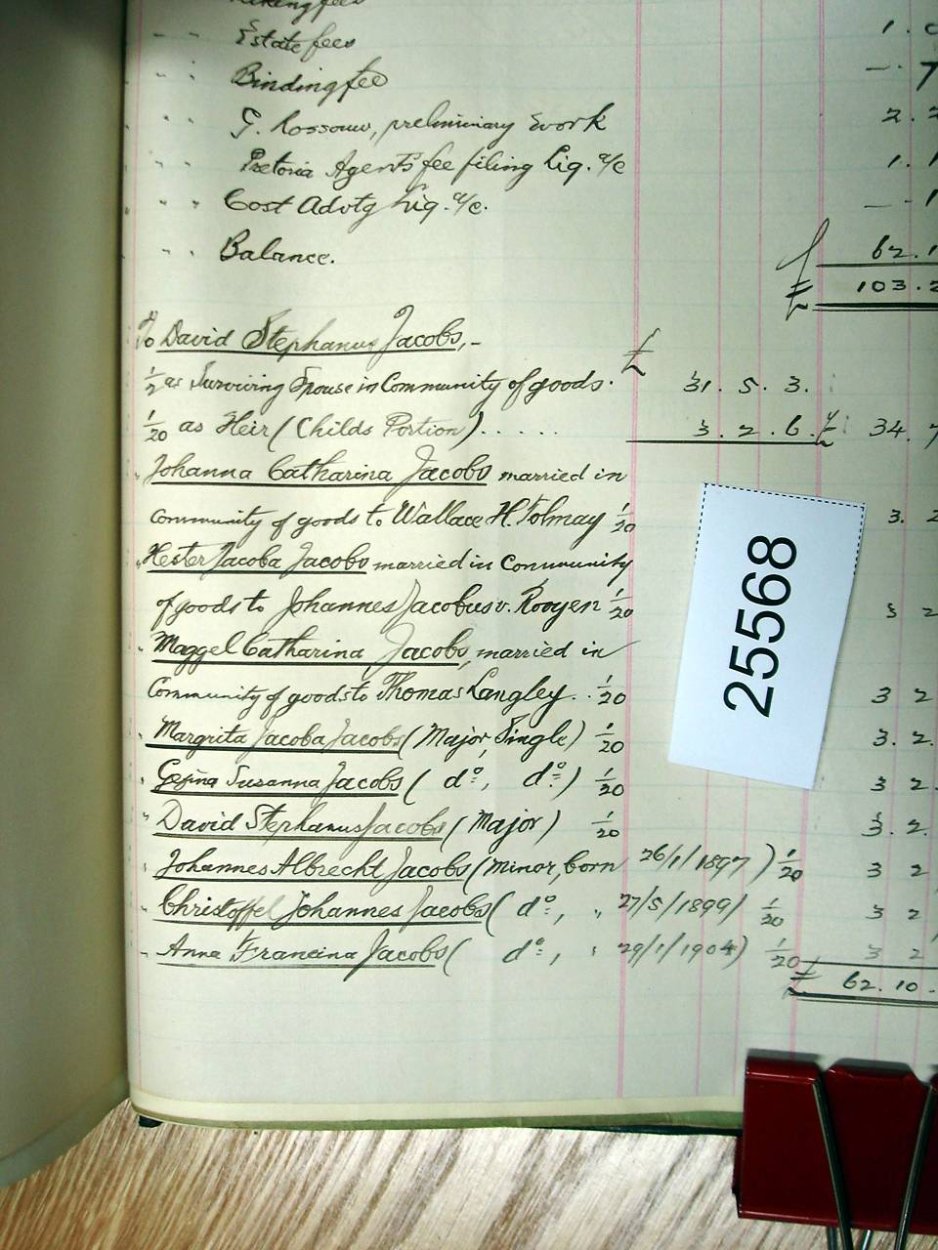 Estate fees 1.
" " Binding fee — 7
" " G. Rossouw, preliminary work 2. 2
" " Pretoria Agents fee filing Liq. a/c 1. 1
" " Cost Advtg Liq. a/c. — 1
" " Balance. 62. 1
£ 103. 2
To David Stephanus Jacobs,- £
1/2 as Surviving Spouse in Community of goods. 31. 5. 3.
1/20 as Heir (Childs Portion)..... 3. 2. 6. £ 34. 7
" Johanna Catharina Jacobs married in
Community of goods to Wallace H. Tolmay 1/20 3. 2
" Hester Jacoba Jacobs married in Community
of goods to Johannes Jacobus v. Rooyen 1/20 3 2
" Maggel Catharina Jacobs, married in
Community of goods to Thomas Langley.. 1/20 3 2
" Margrita Jacoba Jacobs (Major, Single) 1/20 3. 2.
" Gesina Susanna Jacobs ( do, do ) 1/20 3 2.
" David Stephanus Jacobs (Major) 1/20 3. 2.
" Johannes Albrecht Jacobs (Minor, born 26/1/1897 ) 1/20 3 2
" Christoffel Johannes Jacobs ( do, " 27/5/1899) 1/20 3 2
" Anna Francina Jacobs ( do, " 29/1/1904) 1/20 3 2
£ 62. 10.
25568